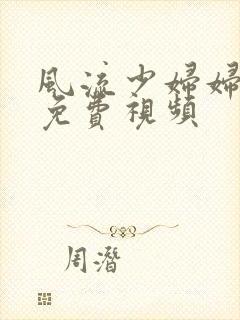 風流少婦婦
免費視頻
周潛